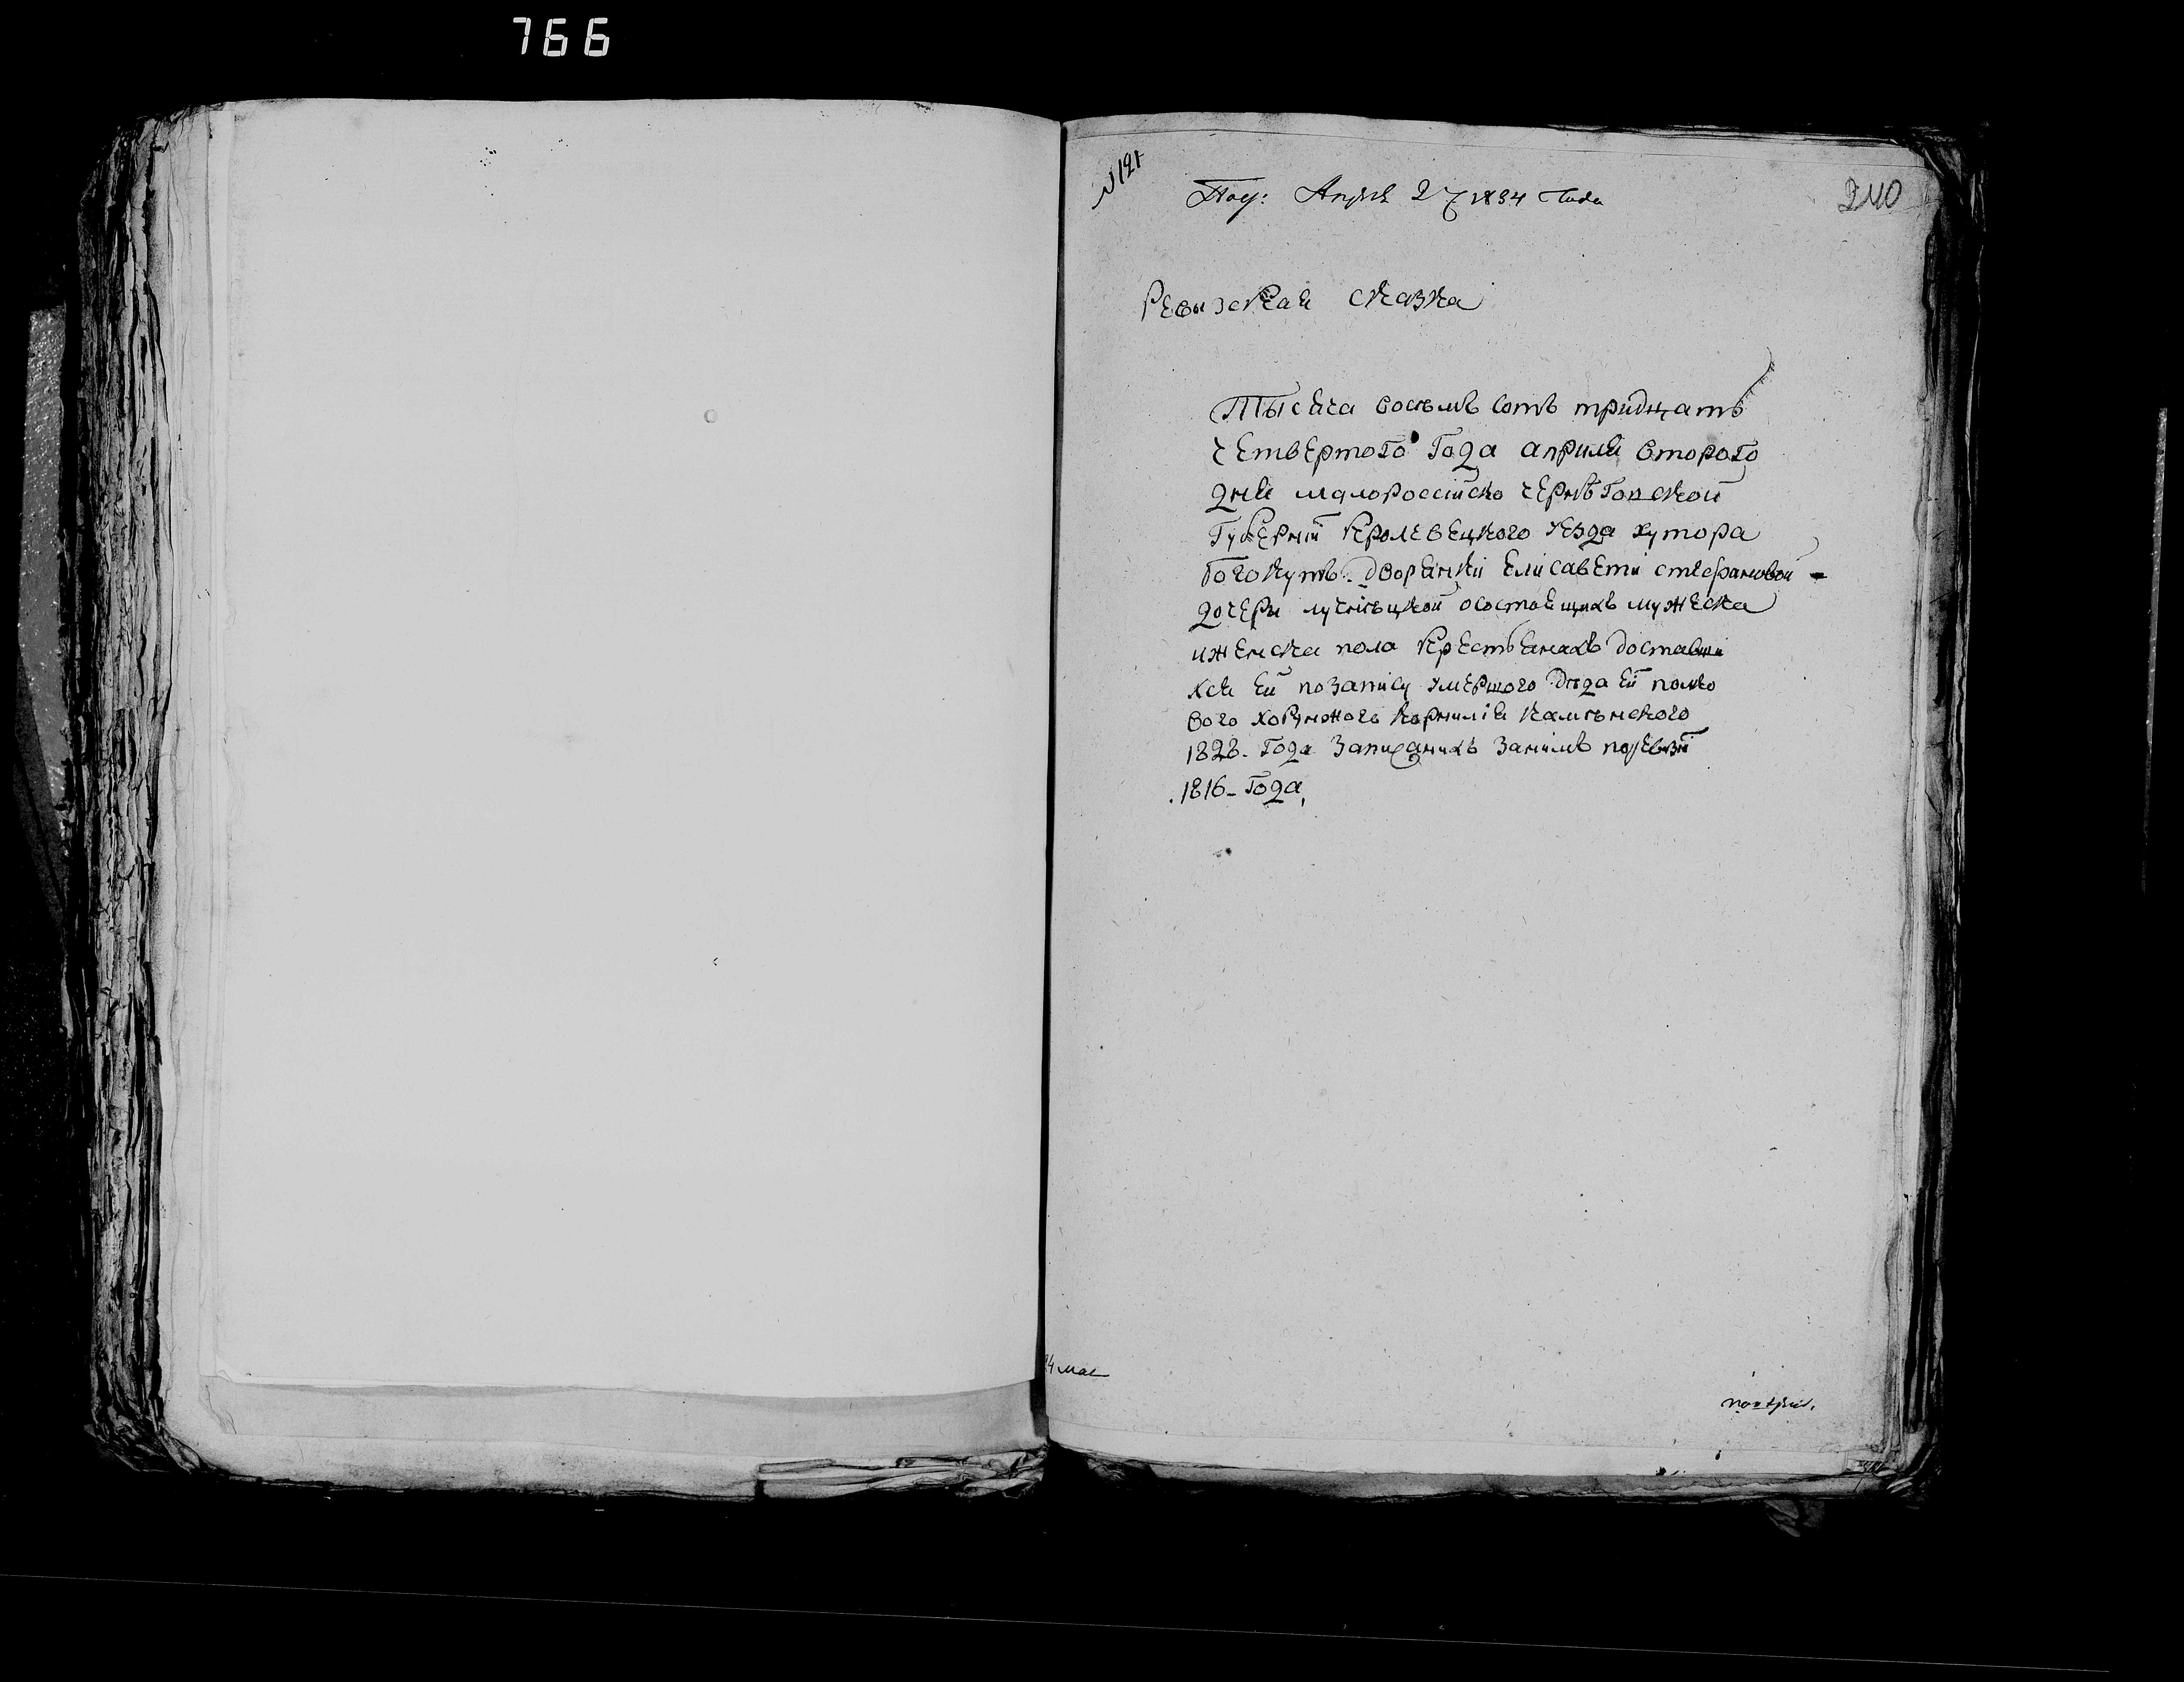 766
№ 121
240
Пол: Апреля 27 1834 Года
Ревизская сказка
Тысяча восемъ сотъ тридцать
Четвертого Года априля второго
дня малороссійско черніговской
Губерній Кролевецкого уезда хутора
дворянкй Елисаветй стефановой -
дочери осостоящихъ мужеска
иженска пола крестьянахъ доставши
хся ей позапису умершого Деда ей полко
вого хорунжого Корнилія Каменского
1828. Года Записаныхъ Занимъ поревизій
1816 - Года,
24 мая